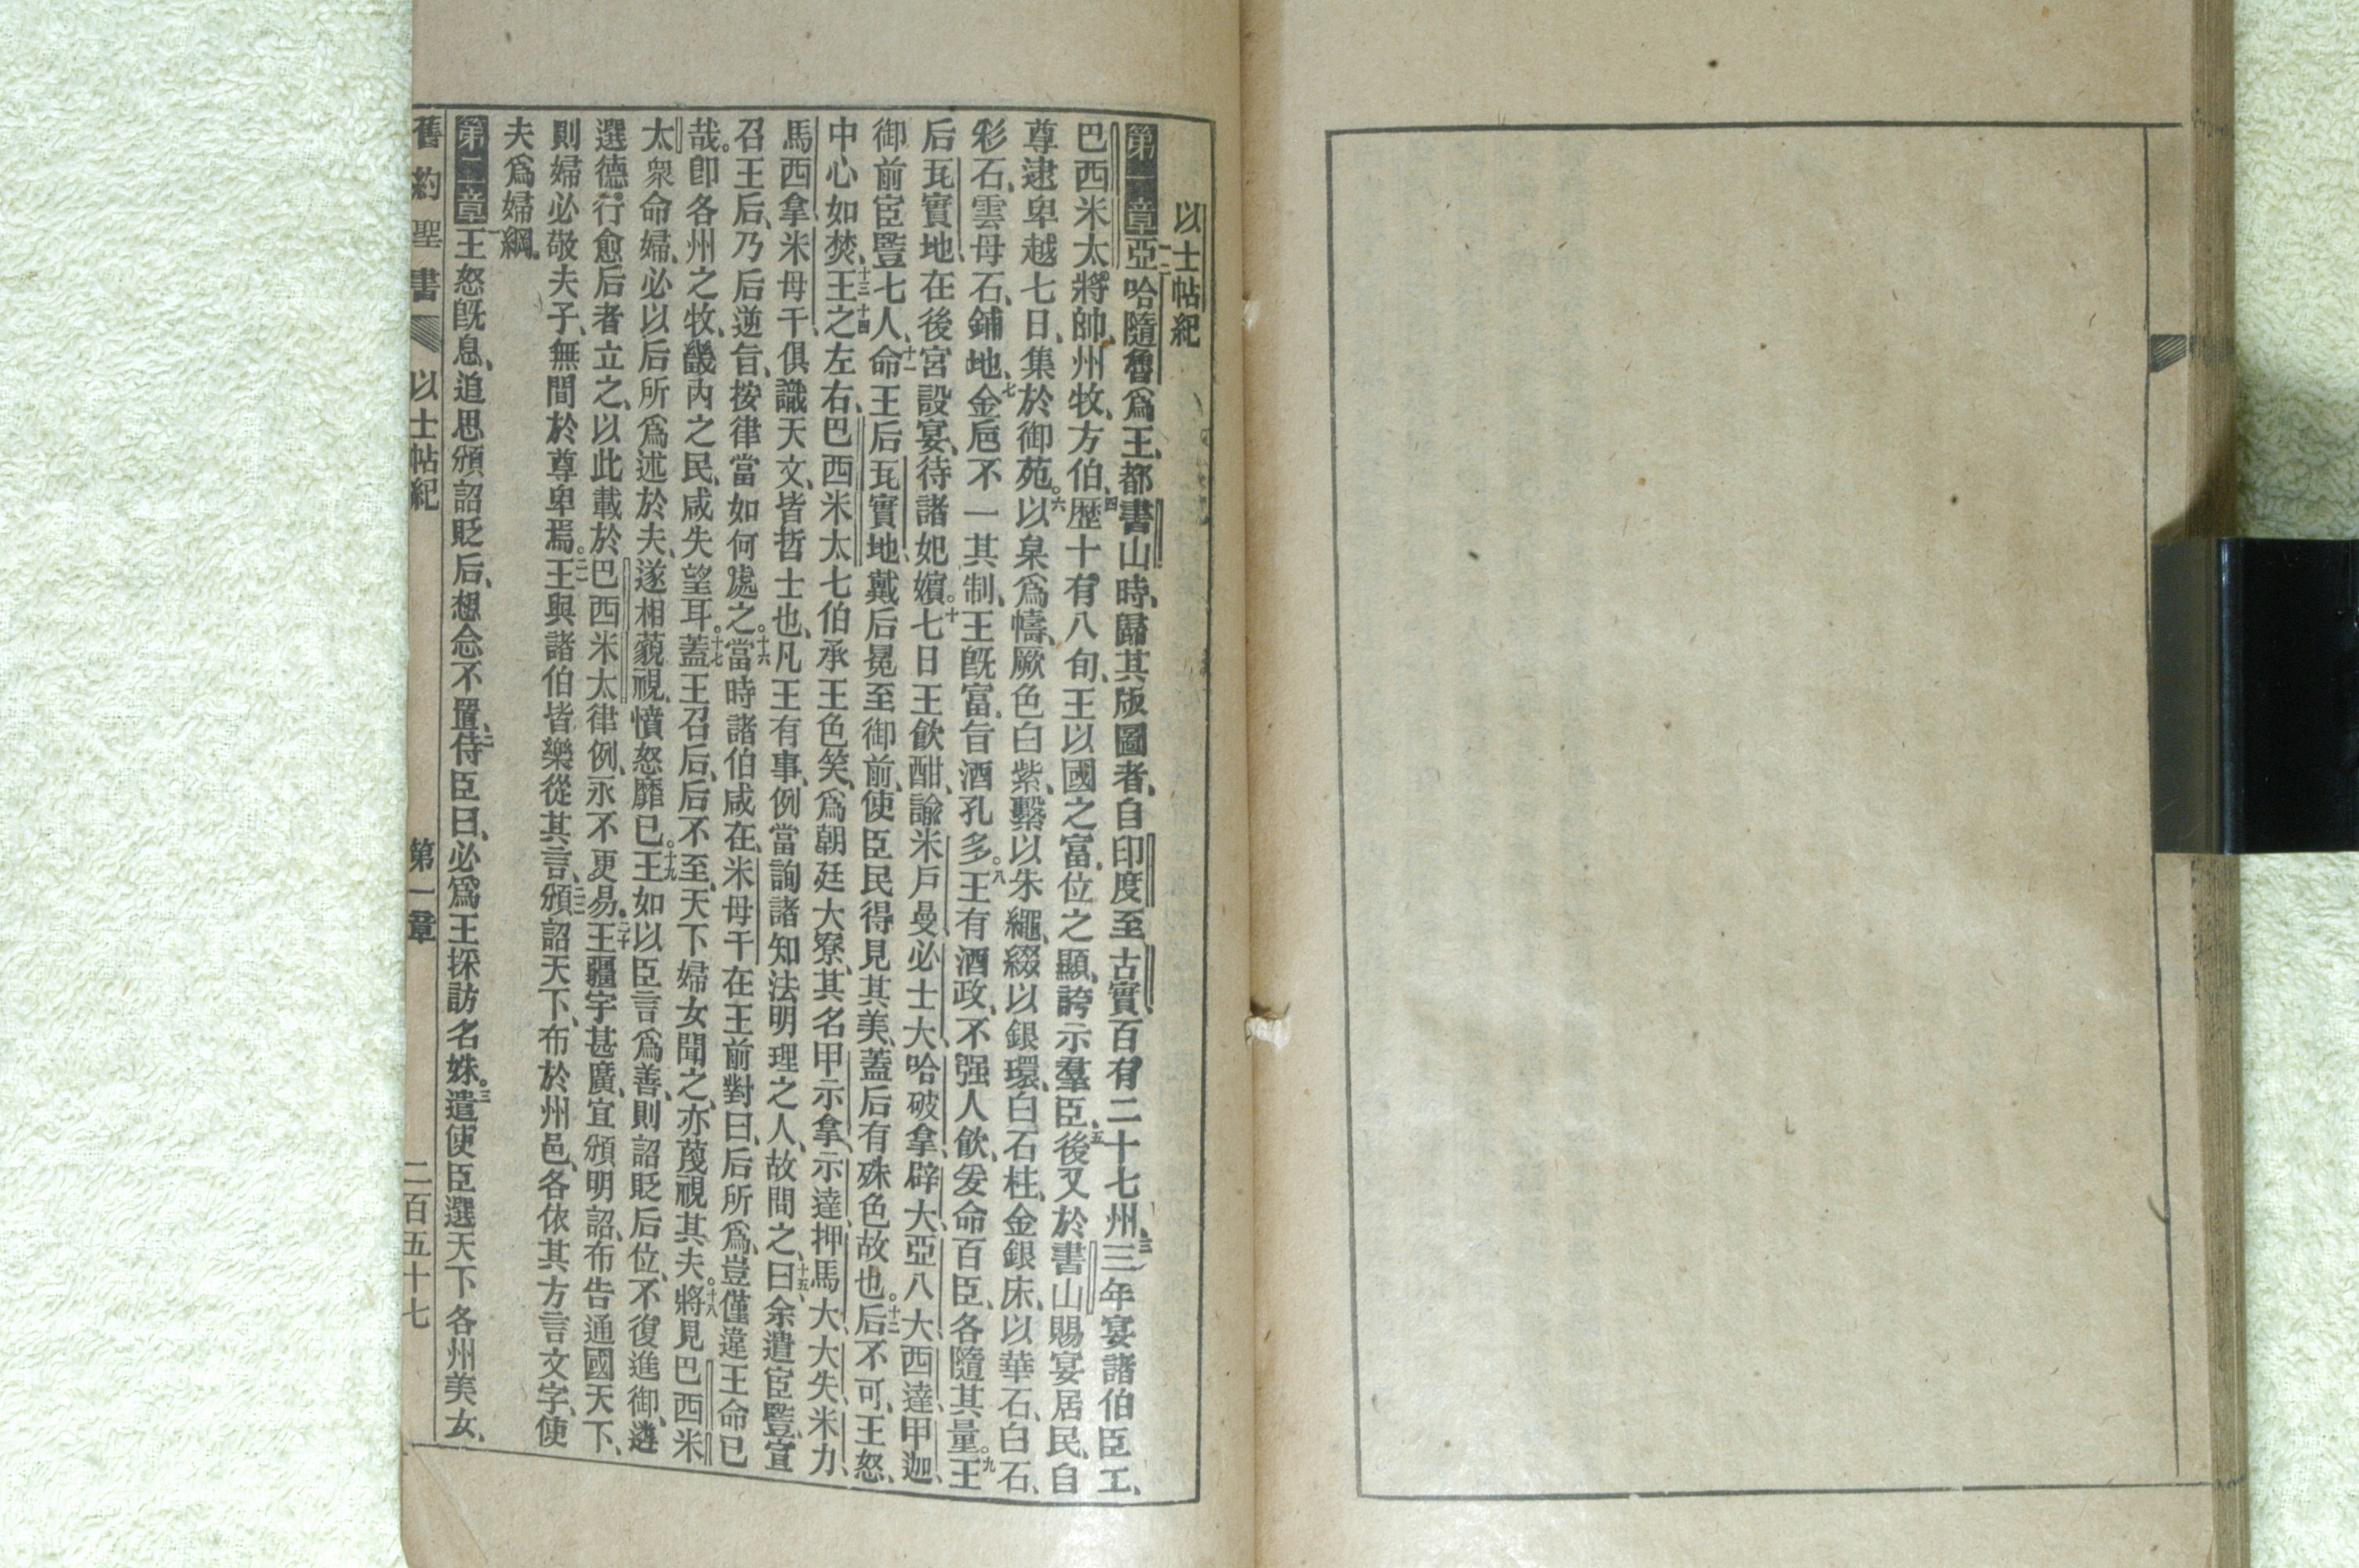 以士帖紀
第一章亞哈隨魯爲王、都書山時、歸其版圖者、自印度至古實、百有二十七州、三年宴諸伯臣工、
巴西米太將帥、州牧、方伯、四歷十有八旬、王以國之富、位之顯、誇示羣臣、五後又於書山賜宴居民、自
尊逮卑越七日、集於御苑。六以枲爲幬、厥色白紫、繫以朱繩、綴以銀環、白石柱、金銀床、以華石、白石、
彩石、雲母石、鋪地、七金巵不一其制、王旣富、旨酒孔多。八王有酒政、不强人飲、爰命百臣、各隨其量。九王
后瓦實地、在後宮設宴、待諸妃嬪。十七日王飲酣、諭米戶曼、必士大、哈破拿、辟大、亞八大、西達、甲迦、
御前宦豎七人、十一命王后瓦實地、戴后冕至御前、使臣民得見其美、蓋后有殊色故也。十二后不可、王怒、
中心如焚、十三王之十四左右、巴西米太七伯承王色笑、爲朝廷大寮、其名甲示拿、示達、押馬大、大失、米力、
馬西拿、米母干、俱識天文、皆哲士也、凡王有事、例當詢諸知法明理之人、故問之、十五曰、余遣宦豎、宣
召王后、乃后逆旨、按律當如何處之。十六當時諸伯咸在、米母干在王前對曰、后所爲、豈僅違王命已
哉。卽各州之牧、畿內之民、咸失望耳。十七蓋王召后、后不至、天下婦女聞之、亦蔑視其夫。十八將見巴西米
太衆命婦、必以后所爲述於夫、遂相藐視、憤怒靡已。十九王如以臣言爲善、則詔貶后位、不復進御、遴
選德行愈后者立之、以此載於巴西米太律例、永不更易。二十王疆宇甚廣、宜頒明詔、布告通國天下、
則婦必敬夫子、無間於尊卑焉。二一王與諸伯皆樂從其言、二二頒詔天下、布於州邑、各依其方言文字、使
夫爲婦綱。
第二章一王怒旣息、追思頒詔貶后、想念不置、二侍臣曰、必爲王探訪名姝。三遣使臣選天下各州美女、
舊約聖書 以士帖紀 第一章 二百五十七